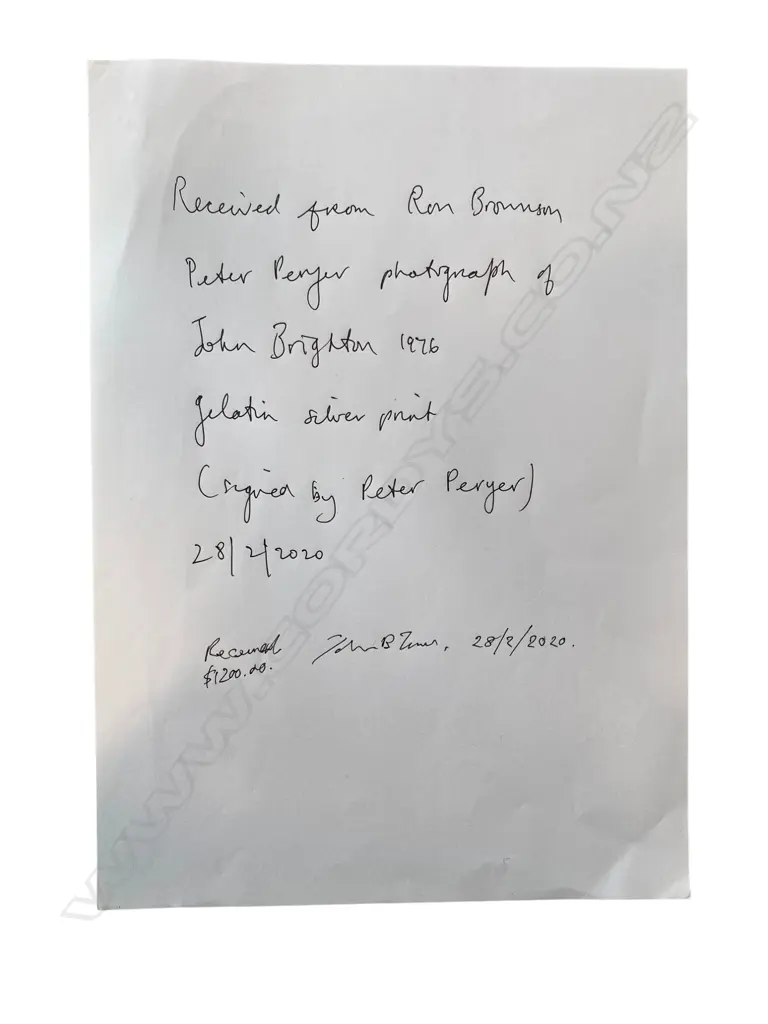 Received from Ron Brownson
Peter Peryer photograph of
John Brighton 1976
gelatin silver print
(signed by Peter Peryer)
28/2/2020
Received John B Turner, 28/2/2020.
$1200.00.
WWW.CORDYS.CO.NZ